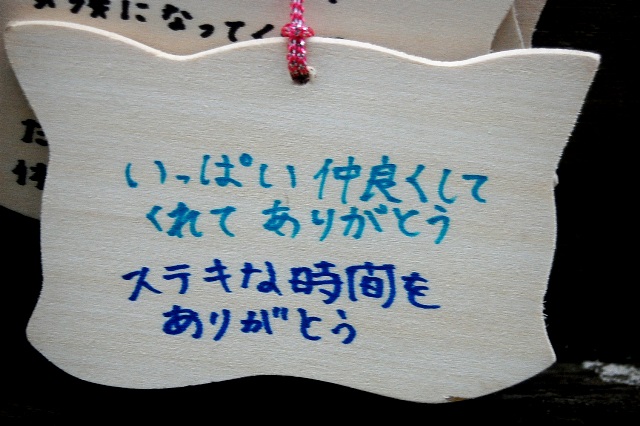 になってく
いっぱい仲良くして
くれてありがとう
ステキな時間を
ありがとう